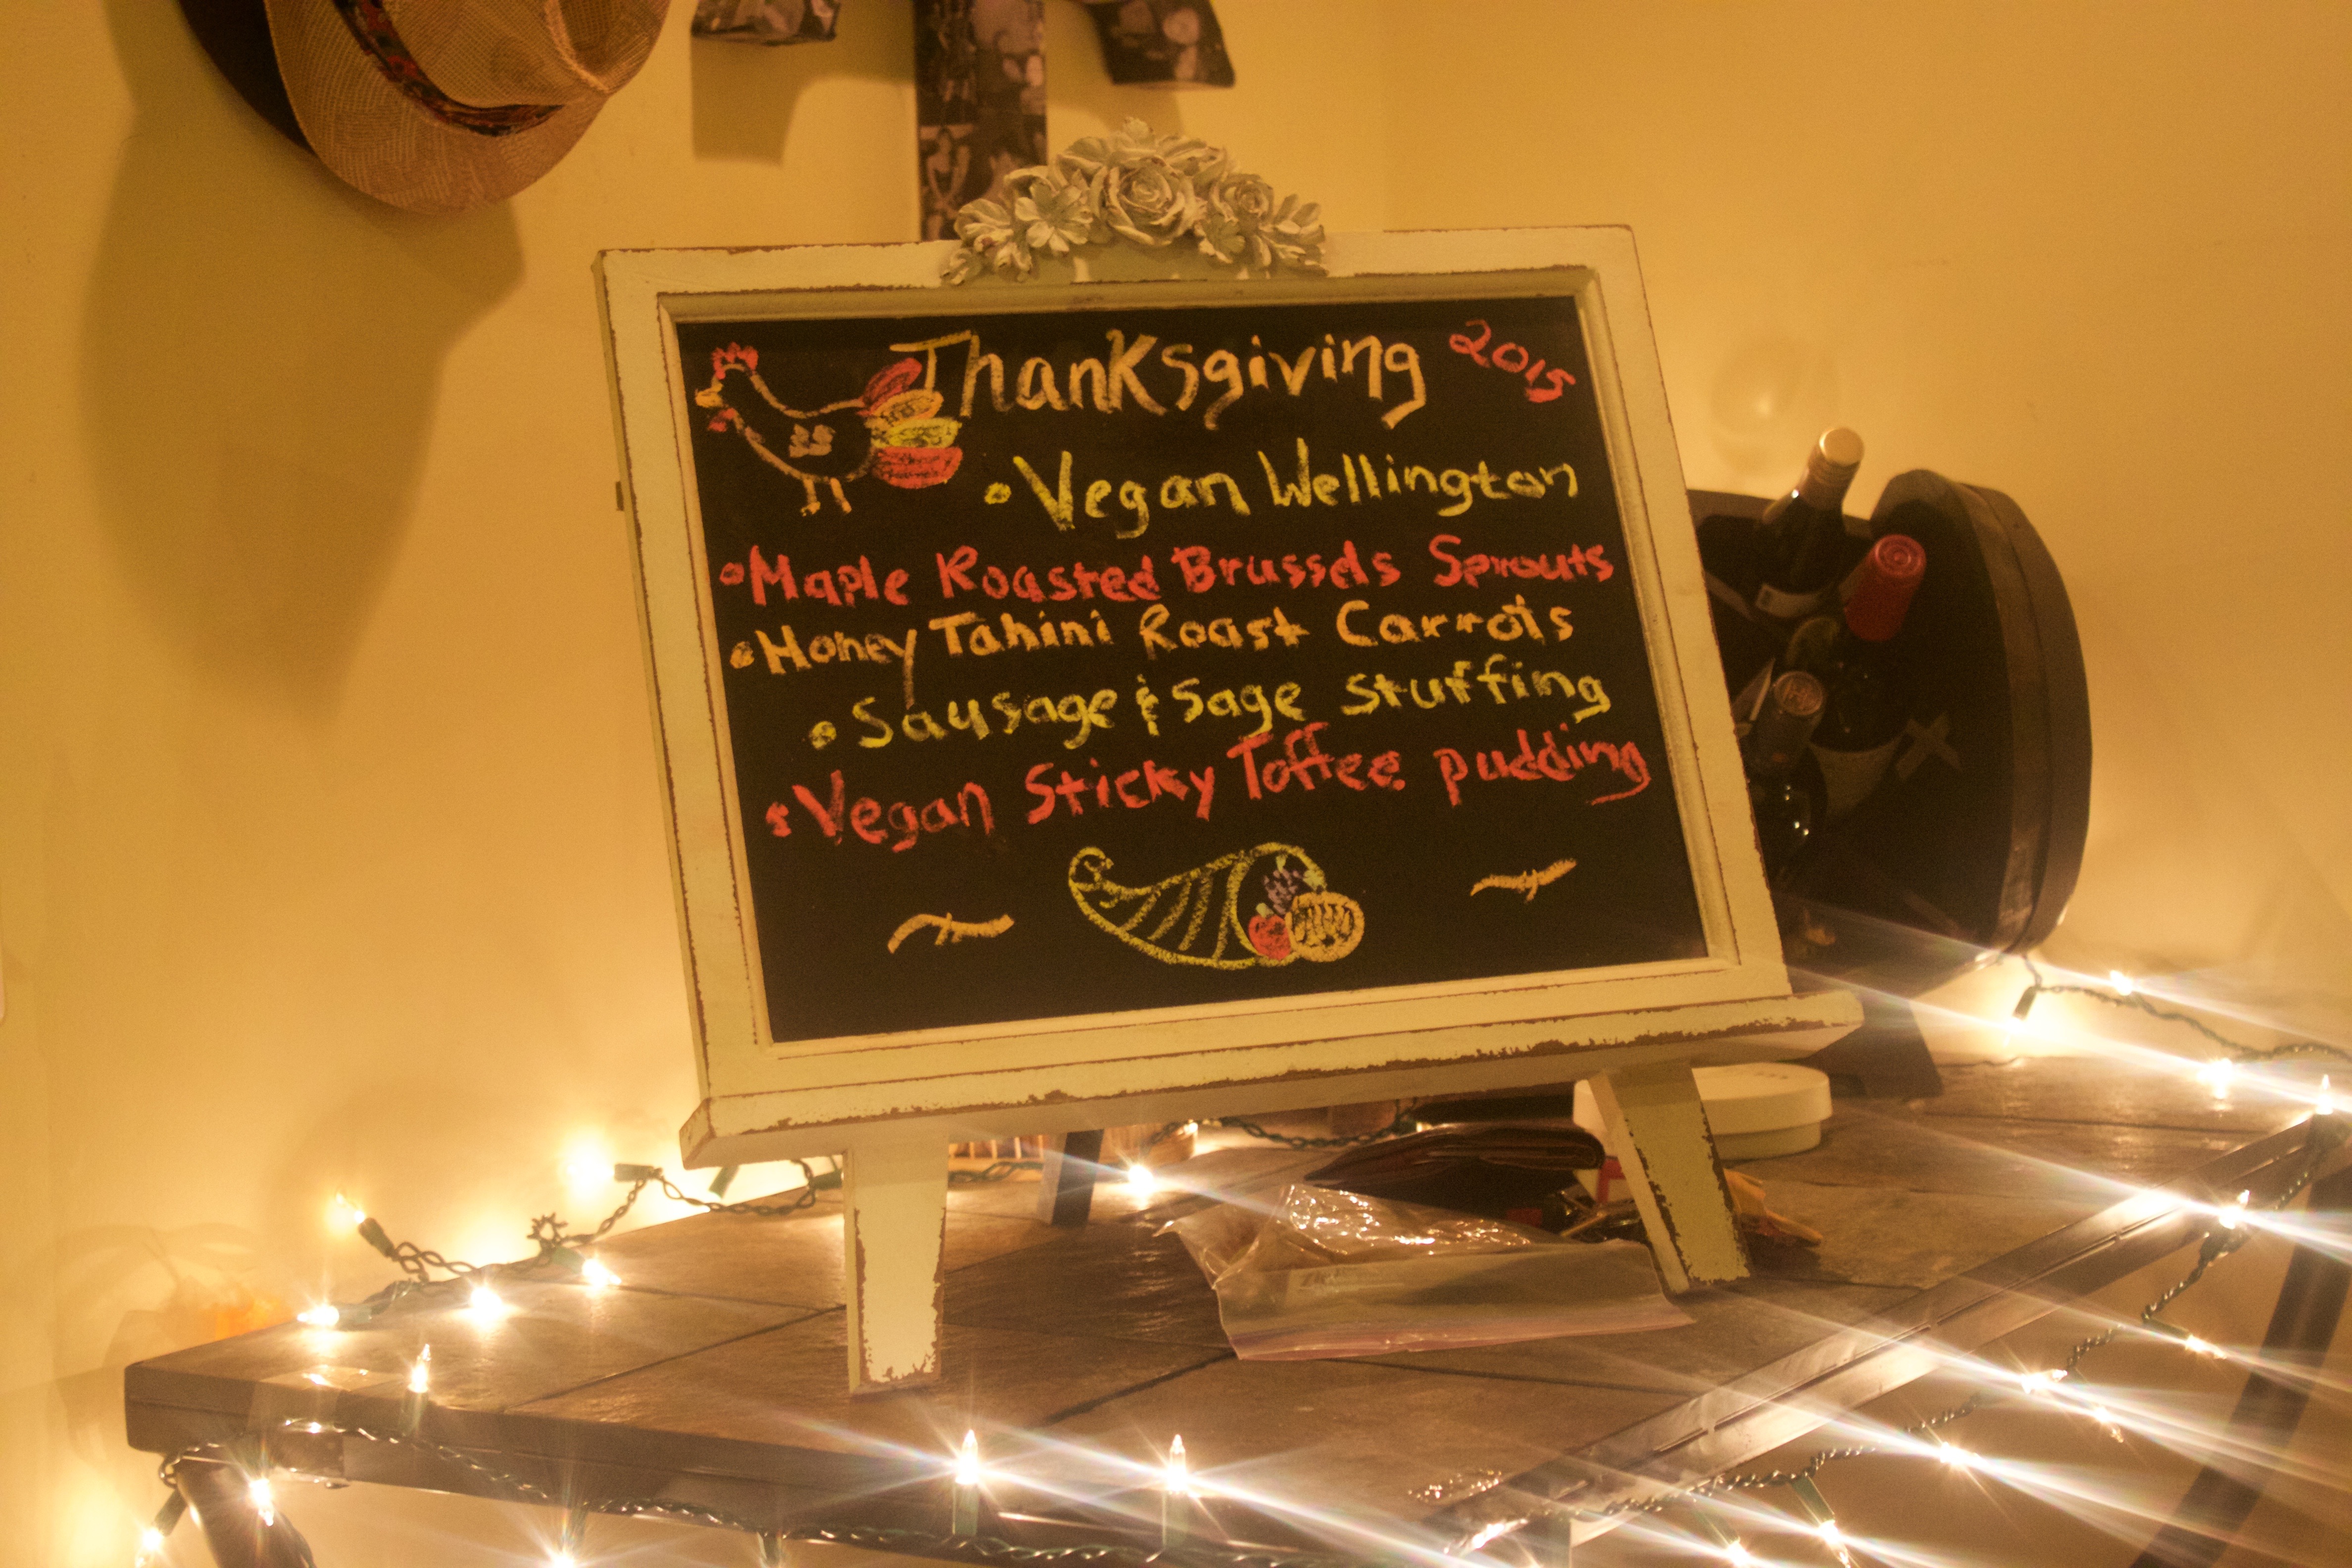 Thanksgiving 2015
• Vegan Wellington
• Maple Roasted Brussels Sprouts
• Honey Tahini Roast Carrots
• Sausage & Sage Stuffing
• Vegan Sticky Toffee pudding